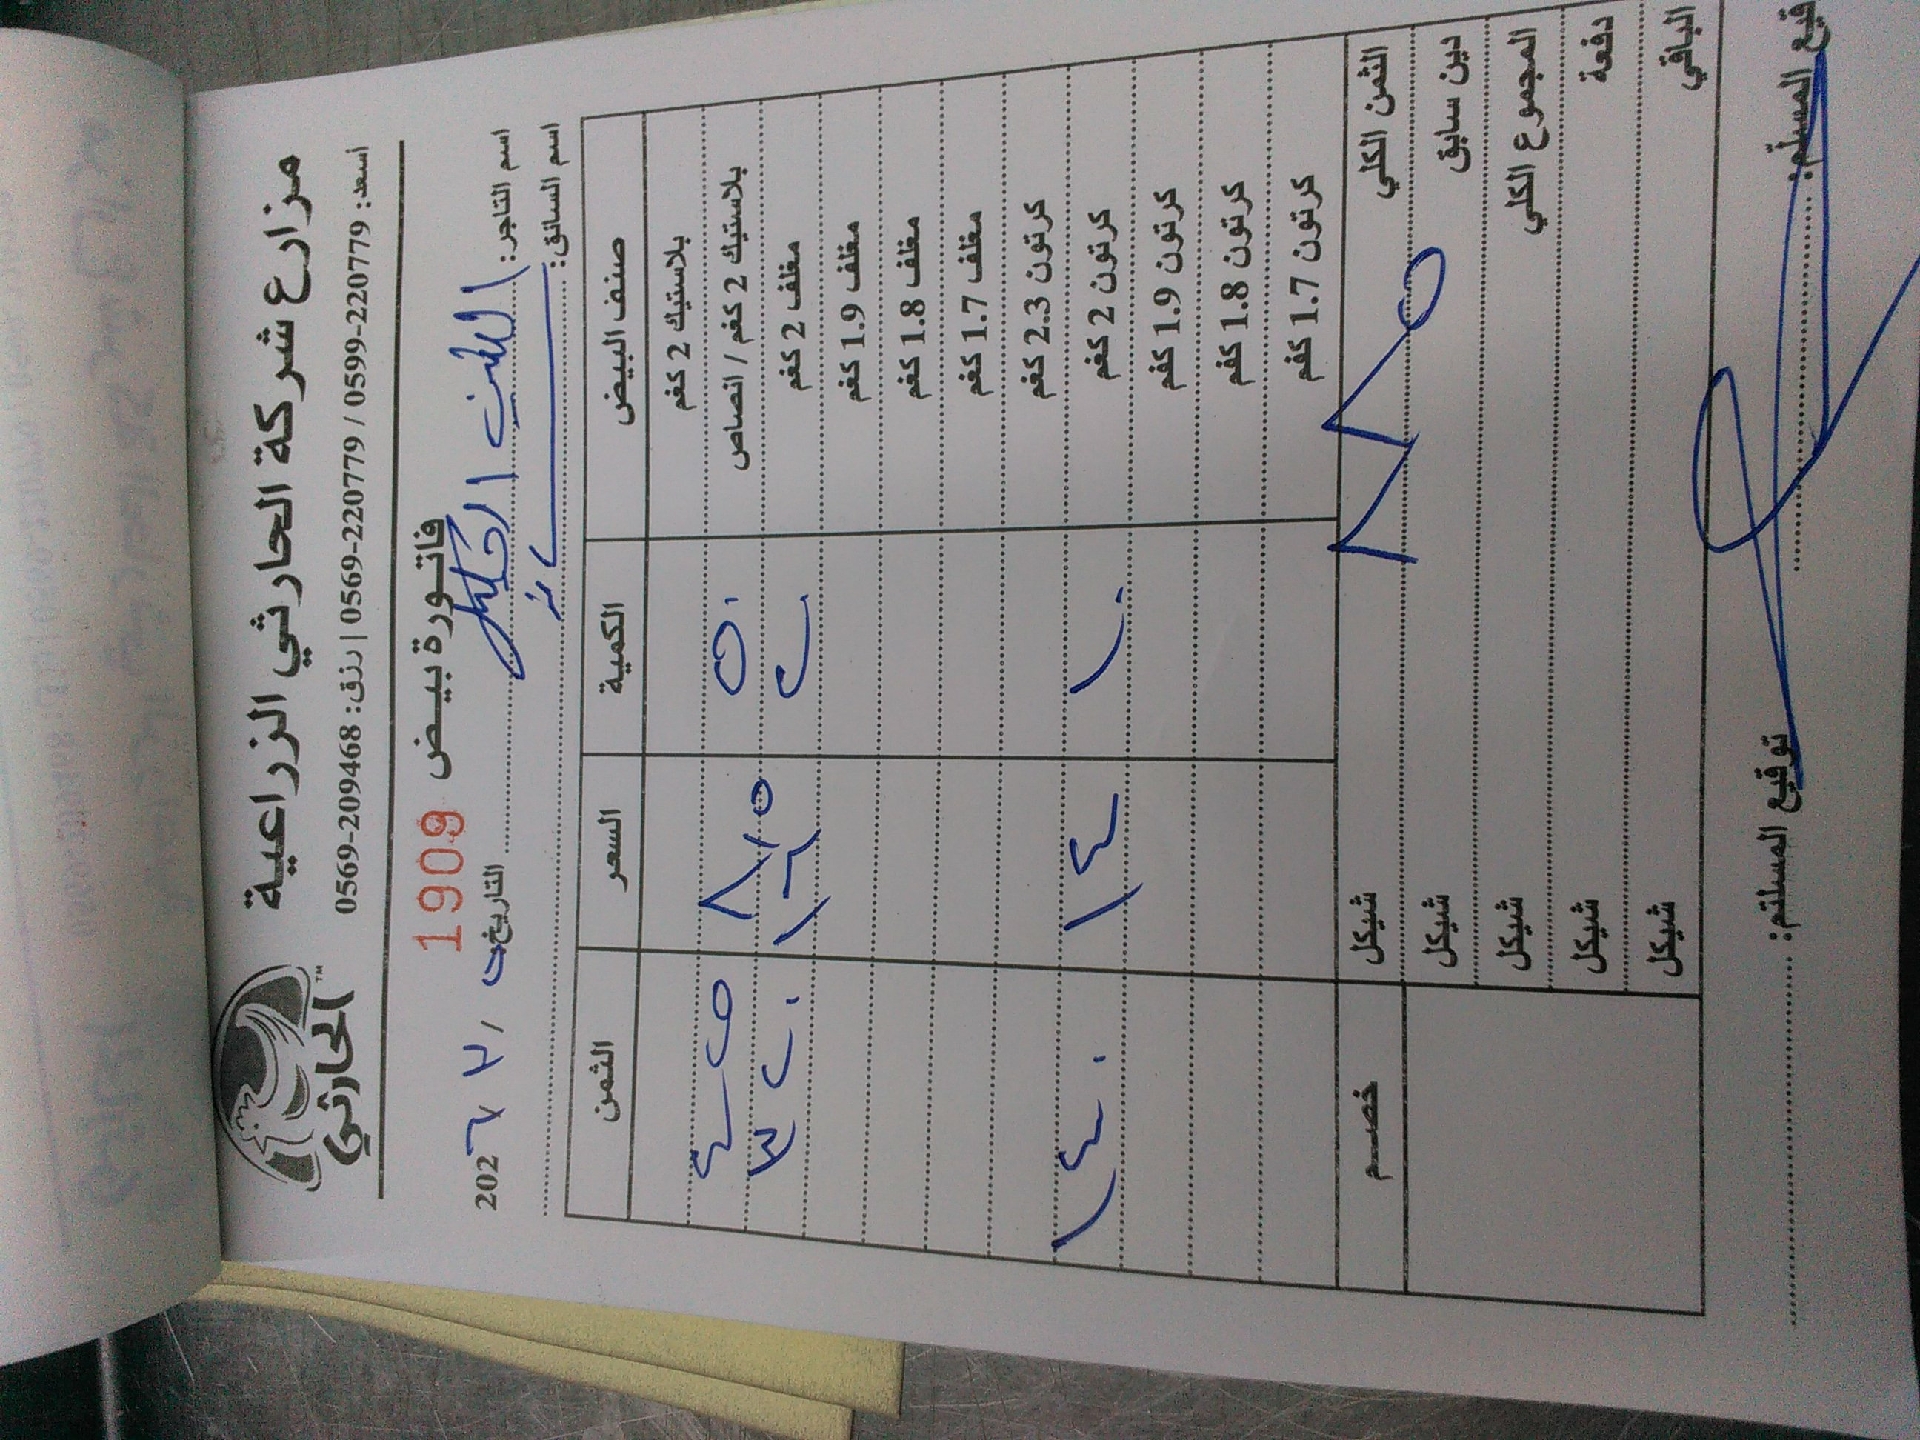 الحارثي
مزارع شركة الحارثي الزراعية
اسعد: 0599-220779 / 0569-220779 | رزق: 0569-209468
فاتورة بيض 1909
اسم التاجر: التاريخ 202
اسم السائق:
صنف البيض الكمية السعر الثمن
بلاستيك 2 كغم
بلاستيك 2 كغم / انصاص ٥٠ ٨٫٥ ٤٢٥
مغلف 2 كغم ١٦ ٣٢٠
مغلف 1.9 كغم
مغلف 1.8 كغم
مغلف 1.7 كغم
كرتون 2.3 كغم
كرتون 2 كغم ١٠ ١٤ ١٤٠
كرتون 1.9 كغم
كرتون 1.8 كغم
كرتون 1.7 كغم
الثمن الكلي ٨٨٥ شيكل خصم
دين سابق شيكل
المجموع الكلي شيكل
دفعة شيكل
الباقي شيكل
قيع المسلم: توقيع المستلم: